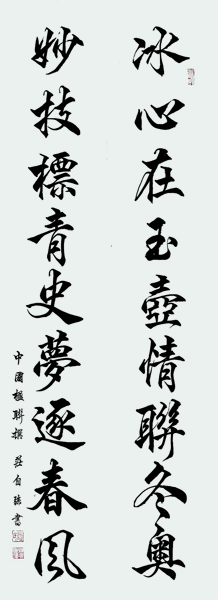 冰心在玉壺情聯冬奧
妙技標青史夢逐春風
中國楹聯撰 莊自